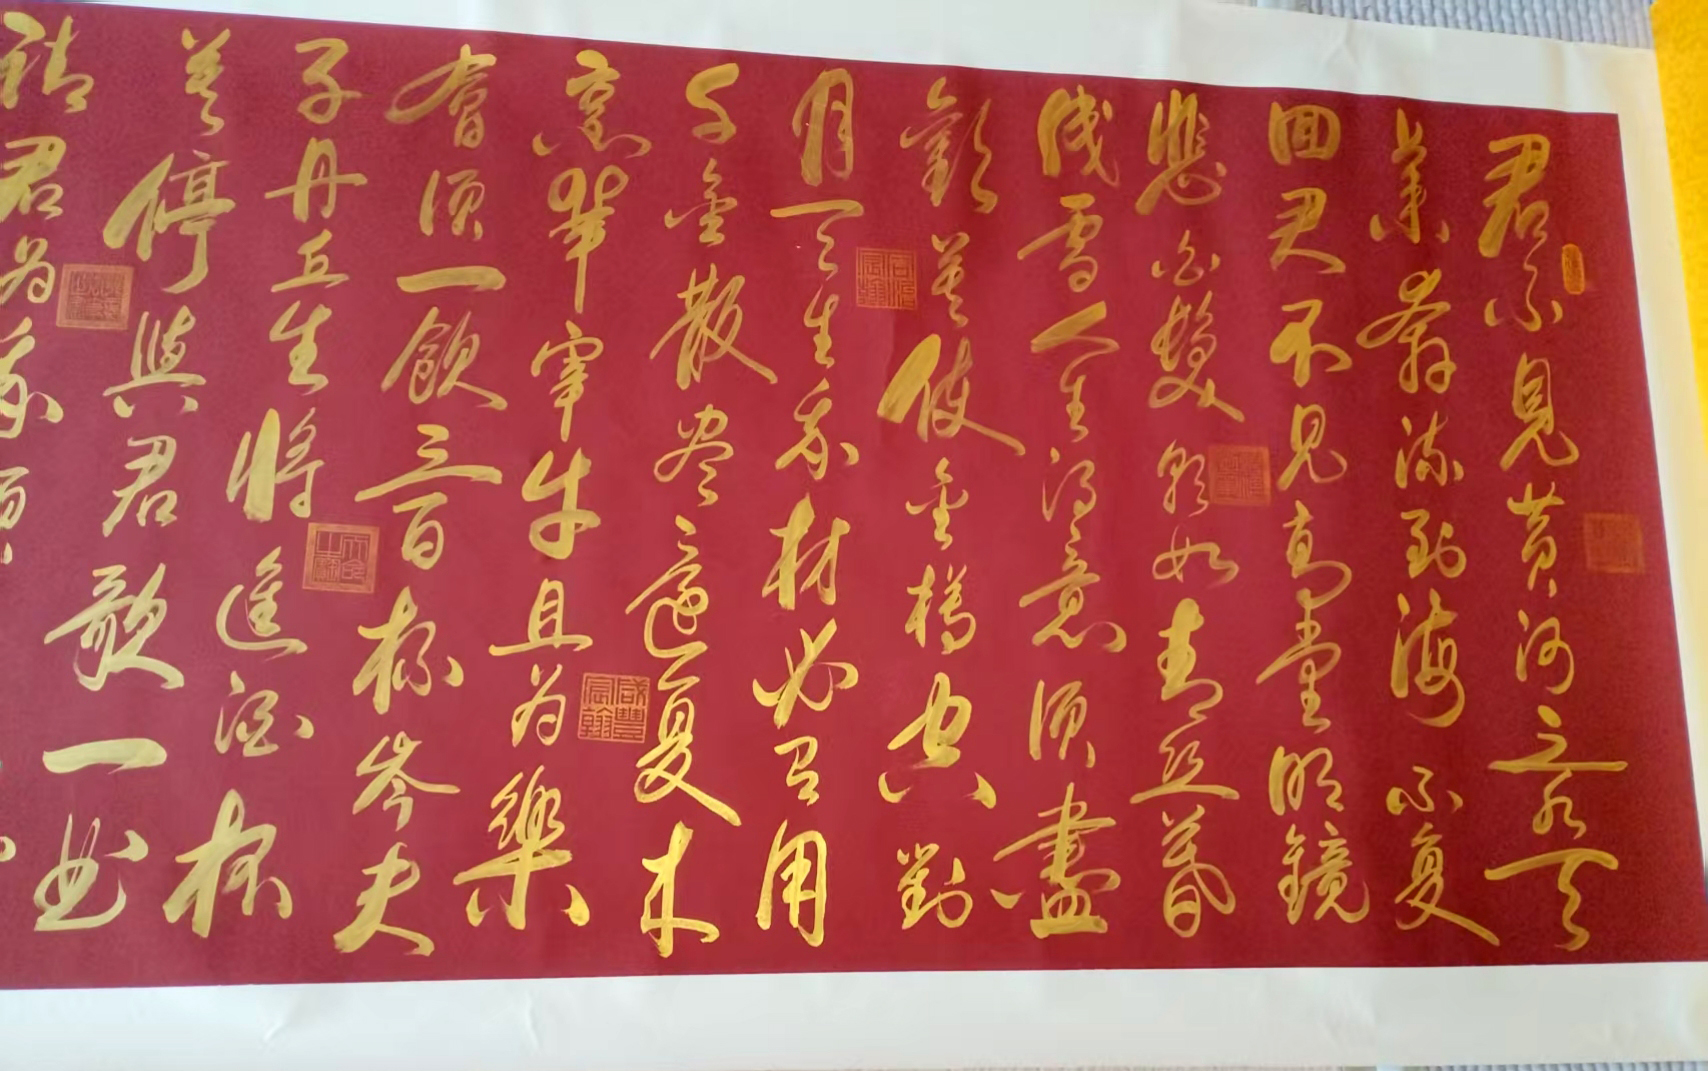 君不見黄河之水天
上来奔流到海不复
回君不見高堂明鏡
悲白髮朝如青丝暮
成雪人生得意须盡
歡莫使金樽空對
月天生我材必有用
千金散尽還复来
烹羊宰牛且为樂
會须一飲三百杯岑夫
子丹丘生將進酒杯
莫停與君歌一曲
請君为我